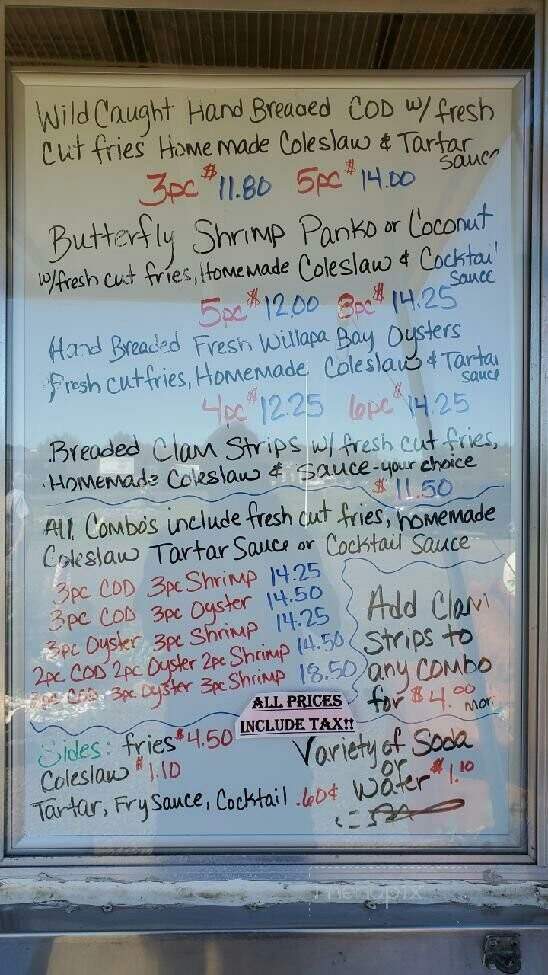 Wild Caught Hand Breaded COD w/ fresh
cut fries Home made Coleslaw & Tartar
Sauce
3pc $11.80 5pc $14.00
Butterfly Shrimp Panko or Coconut
w/fresh cut fries, Homemade Coleslaw & Cocktail
Sauce
5pc $12.00 8pc $14.25
Hand Breaded Fresh Willapa Bay Oysters
Fresh cut fries, Homemade Coleslaw & Tartar
sauce
4pc $12.25 6pc $14.25
Breaded Clam Strips w/ fresh cut fries,
Homemade Coleslaw & Sauce - your choice
$11.50
All Combo's include fresh cut fries, homemade
Coleslaw Tartar Sauce or Cocktail Sauce
3pc COD 3pc Shrimp 14.25
3pc COD 3pc Oyster 14.50
3pc Oyster 3pc Shrimp 14.25
2pc COD 2pc Oyster 2pc Shrimp 14.50
3pc COD 3pc Oyster 3pc Shrimp 18.50
Add Clam
Strips to
any combo
for $4.00 more
ALL PRICES
INCLUDE TAX!!
Sides: fries $4.50
Coleslaw $1.10
Tartar, Fry Sauce, Cocktail .60¢
Variety of Soda
or
Water $1.10
menupix